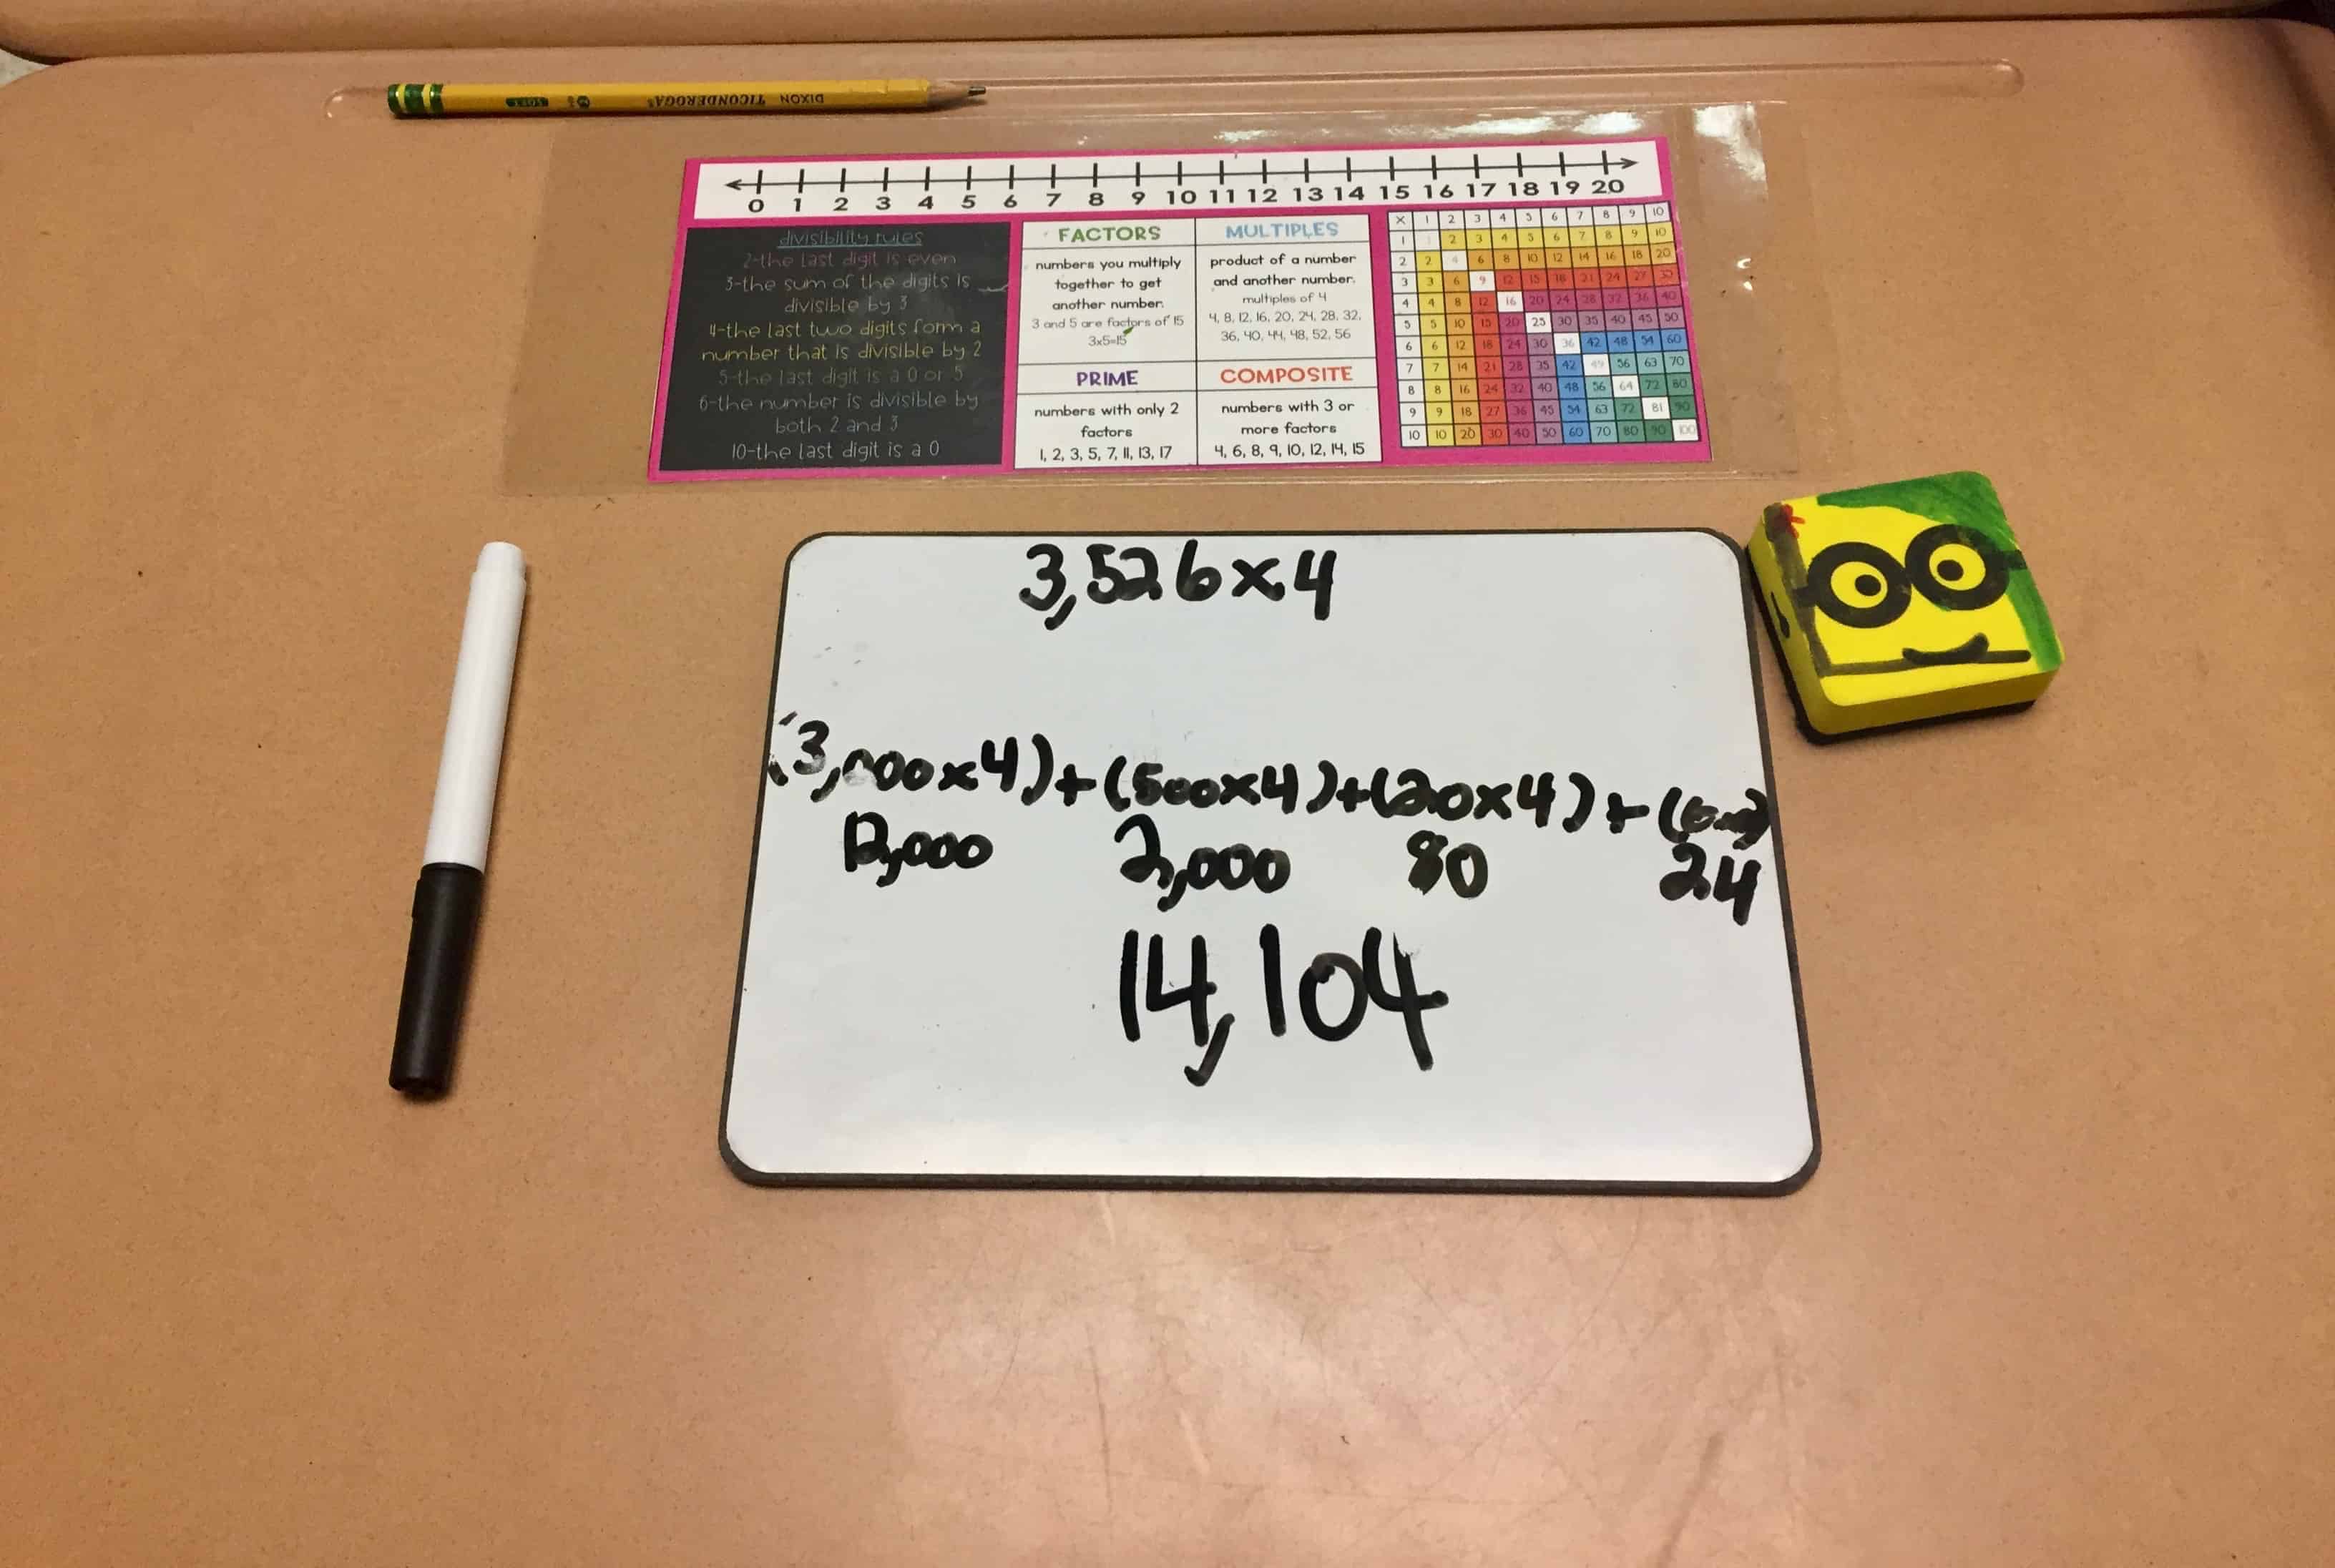 DIXON TICONDEROGA
SOFT
0 1 2 3 4 5 6 7 8 9 10 11 12 13 14 15 16 17 18 19 20
divisibility rules
2-the last digit is even
3-the sum of the digits is
divisible by 3
4-the last two digits form a
number that is divisible by 2
5-the last digit is a 0 or 5
6-the number is divisible by
both 2 and 3
10-the last digit is a 0
FACTORS
numbers you multiply
together to get
another number.
3 and 5 are factors of 15
3x5=15
MULTIPLES
product of a number
and another number.
multiples of 4
4, 8, 12, 16, 20, 24, 28, 32,
36, 40, 44, 48, 52, 56
PRIME
numbers with only 2
factors
1, 2, 3, 5, 7, 11, 13, 17
COMPOSITE
numbers with 3 or
more factors
4, 6, 8, 9, 10, 12, 14, 15
X 1 2 3 4 5 6 7 8 9 10
1 1 2 3 4 5 6 7 8 9 10
2 2 4 6 8 10 12 14 16 18 20
3 3 6 9 12 15 18 21 24 27 30
4 4 8 12 16 20 24 28 32 36 40
5 5 10 15 20 25 30 35 40 45 50
6 6 12 18 24 30 36 42 48 54 60
7 7 14 21 28 35 42 49 56 63 70
8 8 16 24 32 40 48 56 64 72 80
9 9 18 27 36 45 54 63 72 81 90
10 10 20 30 40 50 60 70 80 90 100
3,526x4
(3,000x4)+(500x4)+(20x4)+(6
12,000 2,000 80 24
14,104